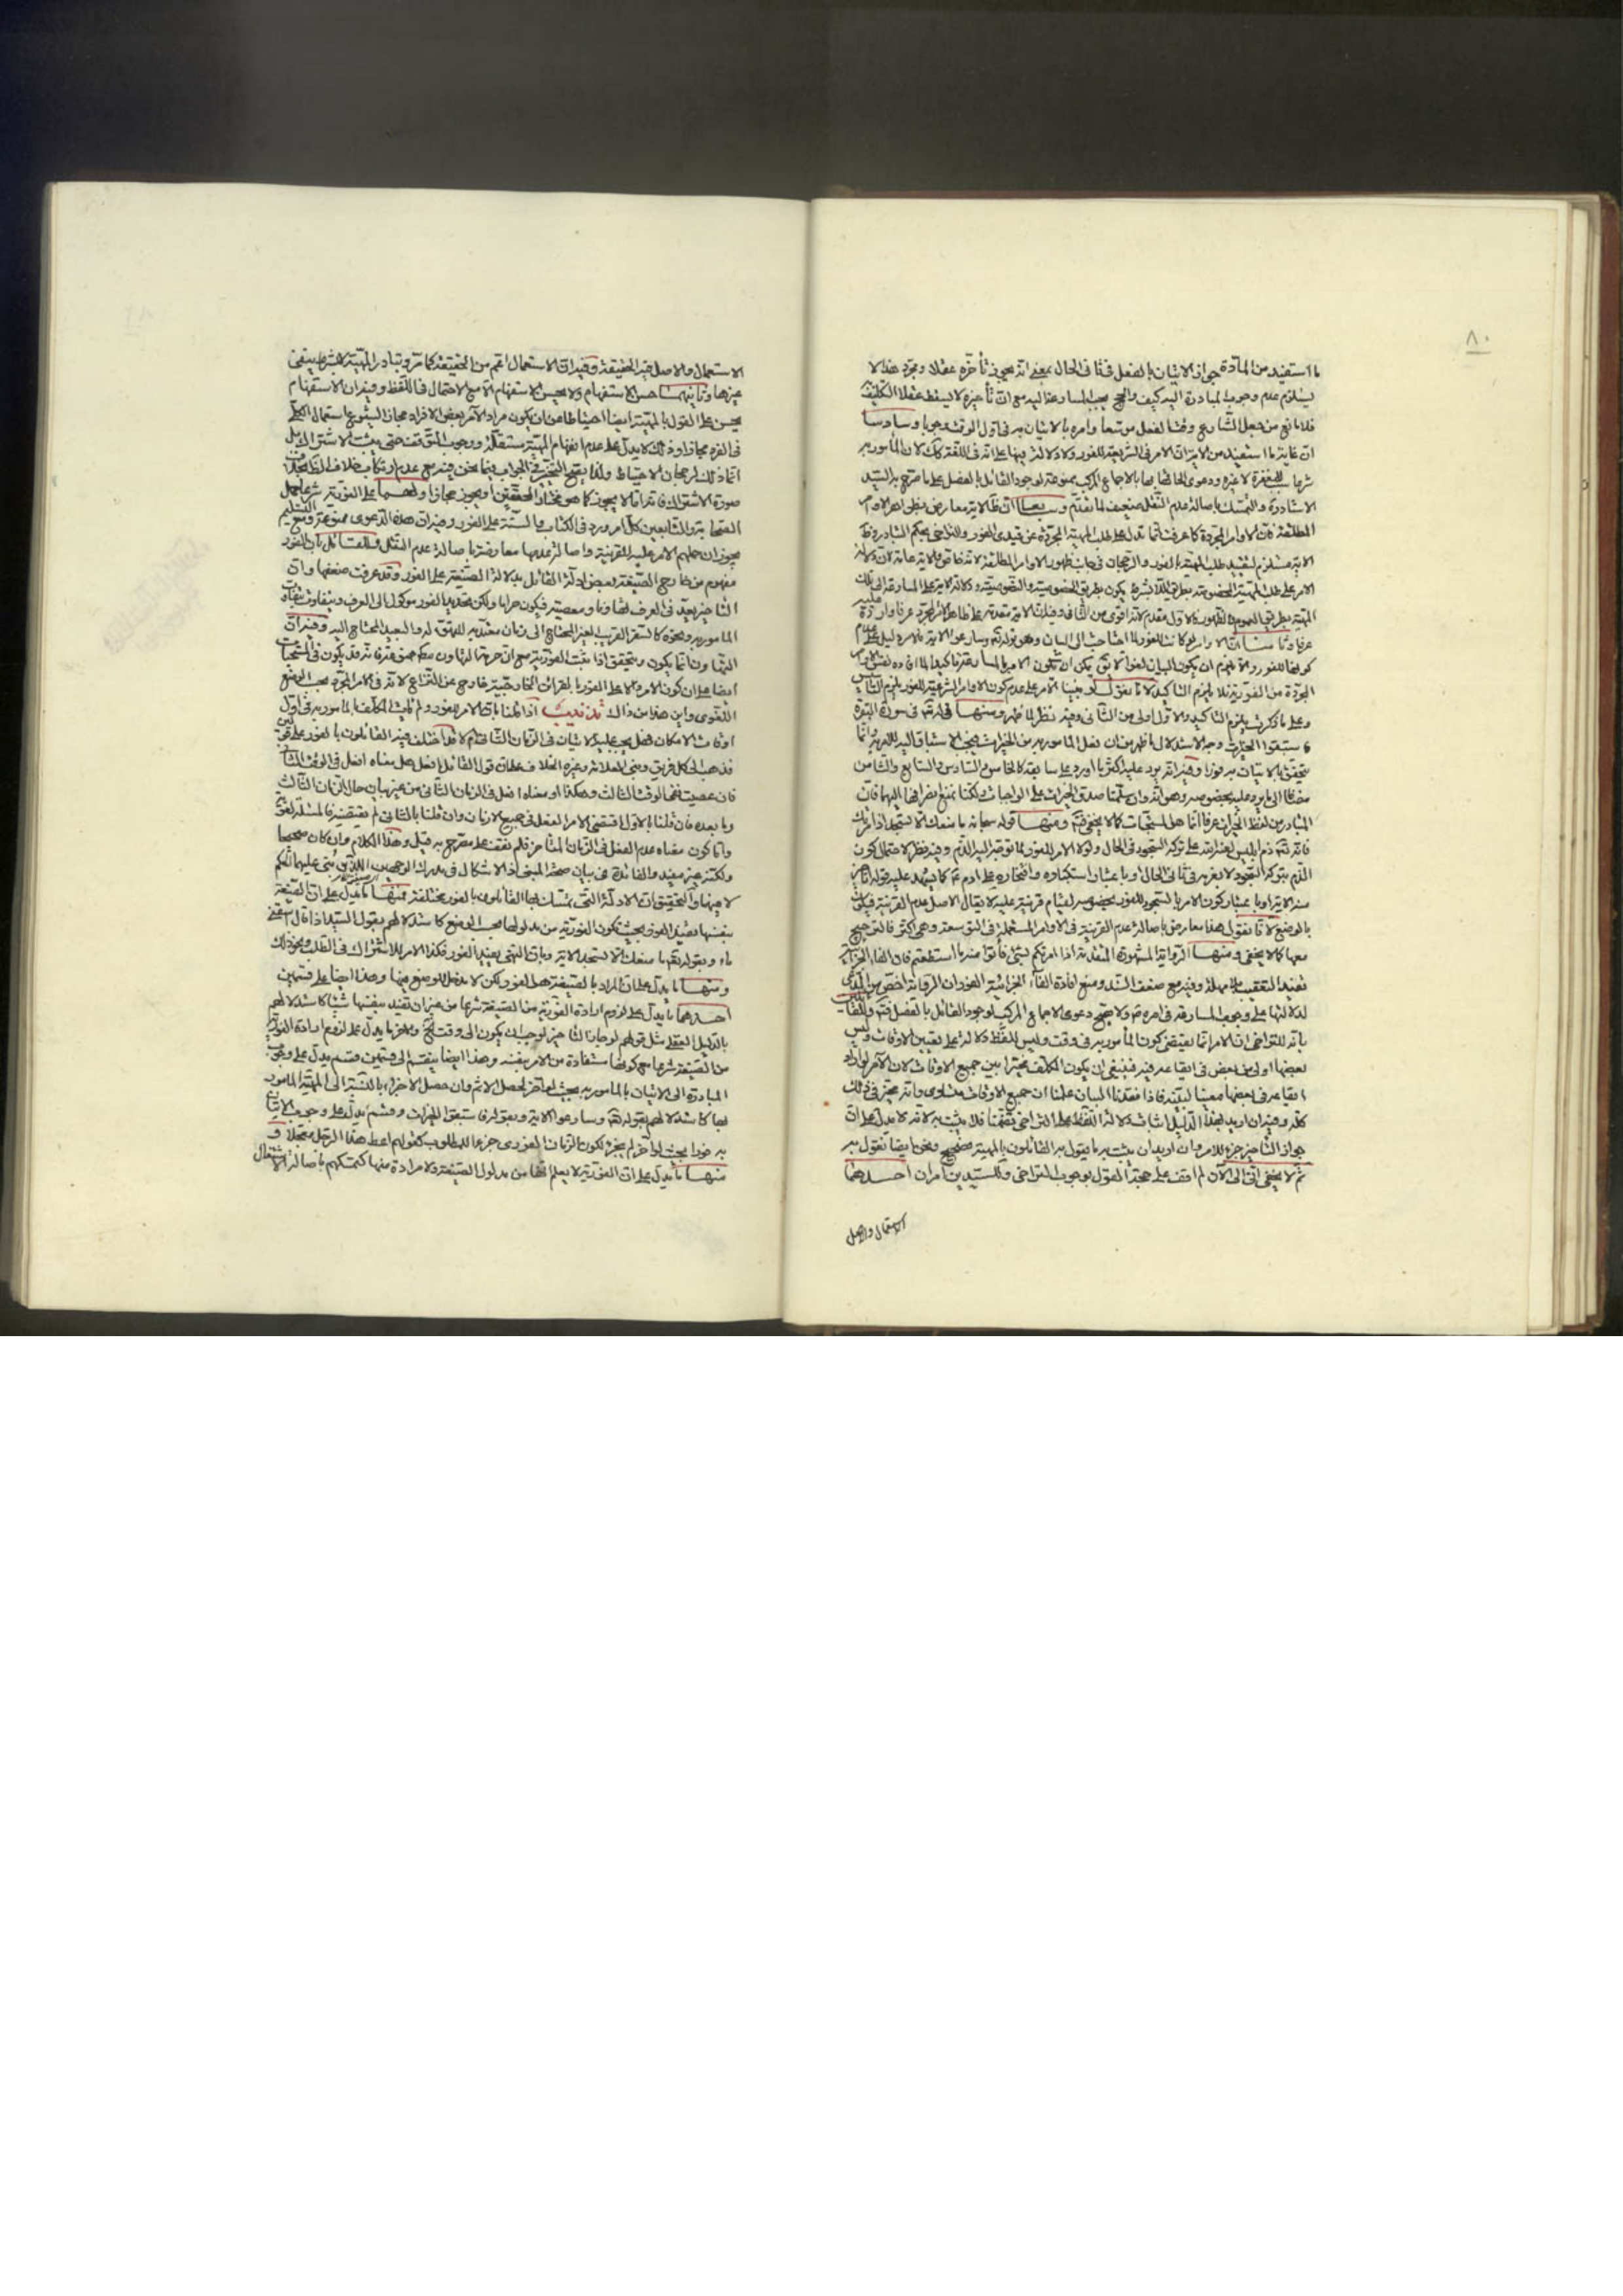 ٨٠
ما استفيد من المادة جواز الاتيان بالفعل فى ثانى الحال بمعنى انه يجوز تأخره عقلا ومجرد هذا لا
يستلزم عدم وجوب المبادرة اليه كيف والحج يجب المسارعة اليه مع ان تأخيره لا يسقط عقلا التكليف
فلا مانع من جعل الشارع وقتا لفعل موسعا وامره بالاتيان به فى اول الوقت وجوبا وسادسا
ان غاية ما استفيد من الاية ان الامر فى الشريعة للفور ولا دلالة فيها على انه فى اللغة كك لان المأمور به
شرعا المغفرة لا غيره ودعوى الحاقها بها بالاجماع المركب ممنوعة لوجود القائل بالفصل على ما صرح به السيد
والتمسك باصالة عدم النقل ضعيف لما تقدم وسابعا ان ظ الاية معارض بظواهر الاوامر
المطلقة فان الاوامر المجردة كما عرفت انما تدل على طلب المهية المجردة عن قيدى الفور والتراخى بحكم التبادر وظ
الاية مستلزم لتقييد طلب المهية بالفور والرجحان فى جانب ظهور الاوامر المطلقة
الامر على طلب المهية
المهية بطريق العموم
عرفا وثامنا ان الاوامر لو كانت للفور لما احتاجت الى البيان وهو قوله تعالى وسارعوا الاية
كونها للفور والا يلزم ان يكون البيان لغوا لا يق يمكن ان تكون الامر بالمسارعة تاكيدا لما افاده نفس الاوامر
المجردة من الفورية فلا يلزم التاكيد لانا نقول
وعلى ما ذكرت يلزم التاكيد والاول اولى من الثانى وفيه نظر لما ظهر ومنها قوله تعالى فى سورة البقرة
فاستبقوا الخيرات وجه الاستدلال ان فعل المأمور به من الخيرات فيجب الاستباق اليه وانما
يتحقق بالاتيان به فورا وفيه انه يرد عليه اكثر ما اورد على سابقه كالخامس والسادس والسابع والثامن
مضافا الى ما يرد عليه بخصوصه وهو انه وان سلمنا صدق الخيرات على الواجبات ولكنا نمنع انصرافها اليها فان
المتبادر من لفظ الخيرات عرفا انما هى المستحبات كما لا يخفى ومنها قوله سبحانه ما منعك ان لا تسجد اذ امرتك
فانه تعالى ذم ابليس لعنه الله على تركه السجود فى الحال ولولا الامر للفور لما توجه اليه الذم وفيه نظر لاحتمال كون
الذم بتركه السجود لا بفوريته فى ثانى الحال او باعتبار استكباره وافتخاره على ادم كما يشهد عليه قوله انا خير
منه الاية او باعتبار كون الامر بالسجود للفور بخصوصه لقيام قرينة عليه لا يقال الاصل عدم القرينة فيكون
بالوضع لانا نقول هذا معارض باصالة عدم القرينة فى الاوامر المستعملة فى التوسعة وهى اكثر فالترجيح
معها كما لا يخفى ومنها الرواية المشهورة المتقدمة اذا امرتكم بشئ فأتوا منه ما استطعتم فان الفاء الجزائية
تفيد التعقيب بلا مهلة وفيه مع ضعف السند ومنع افادة الفاء الجزائية الفور ان الرواية اخص من المدعى
لدلالتها على وجوب المسارعة فى امره ولا يصح دعوى الاجماع المركب لوجود القائل بالفصل
بانه للتراخى ان الامر انما يقتضى كون المأمور به فى وقت وليس للفظ دلالة على تعيين الاوقات وليس
بعضها اولى من بعض فى ايقاعه فيه فينبغى ان يكون المكلف مخيرا بين جميع الاوقات لان الآمر لو اراد
ايقاعه فى بعضها معينا لبينه فاذا فقدنا البيان علمنا ان جميع الاوقات متساوى وانه مخير فى ذلك
كله وفيه ان اريد بهذا الدليل اثبات دلالة اللفظ على التراخى فلا يثبت به لانه لا يدل على ان
جواز التأخير جزء للامر وان اريد ان يثبت به ما يقول به القائلون بالمهية فصحيح ونحن ايضا نقول به
ثم لا يخفى انى الى الآن لم اقف على حجة القول بوجوب التراخى وللسيدين امران احدهما
الاستعمال والاصل
الاستعمال والاصل فيه الحقيقة وفيه ان الاستعمال اعم من الحقيقة كما مر وتبادر المهية لا بشرط ينفى
غيرها وثانيهما حسن الاستفهام ولا يحسن الاستفهام الا مع الاحتمال فى اللفظ وفيه ان الاستفهام
يحسن على القول بالمهية ايضا احتياطا عن ان يكون مراد الآمر بعض الافراد مجازا لشيوع استعمال الكلى
فى الفرد مجازا وذلك لا يدل على عدم انفهام المهية مستقلة ووجوب التوقف حتى يثبت الاشتراك بل
انما ذلك لرجحان الاحتياط ولذا يقبح التخيير فى الجواب
صورة الاشتراك فانه اما لا يجوز كما هو مختار المحققين او يجوز مجازا
الصحابة والتابعين كل امر ورد فى الكتاب والسنة على الفور وفيه ان هذه الدعوى ممنوعة
يجوز ان حملهم الامر عليه للقرينة واصالة عدمها معارضة باصالة عدم النقل وللقائل بان الفور
مفهوم من خارج الصيغة بعض ادلة القائل بدلالة الصيغة على الفور وقد عرفت ضعفها وان
التأخير يعد فى العرف تهاونا ومعصية فيكون حراما ولكن تحديد الفور موكول الى العرف ويتفاوت بتفاوت
المأمور به ونحوه كالسفر القريب لغير المحتاج الى زمان معتد به للتهيؤ له والبعيد المحتاج اليه وفيه ان
التهاون انما يكون ويتحقق اذا ثبت الفورية مع ان حرمة التهاون مط ممنوعة فانه قد يكون فى المستحبات
ايضا على ان كون الامر دالا على الفور بالقرائن الخارجية خارج عن النزاع لانه فى الامر المجرد بحسب الوضع
اللغوى واين هذا من ذاك تذنيب اذا قلنا بان الامر للفور ولم يأت المكلف بالمأمور به فى اول
اوقات الامكان فهل يجب عليه الاتيان فى الزمان الثانى ام لا اختلف فيه القائلون بالفور على قولين
فذهب الى كل فريق وبنى العلامة وغيره الخلاف على ان قول القائل افعل هل معناه افعل فى الوقت الثانى
فان عصيت ففى الوقت الثالث وهكذا او معناه افعل فى الزمان الثانى من غير بيان حال الزمان الثالث
وما بعده فان قلنا بالاول اقتضى الامر الفعل فى جميع الازمان وان قلنا بالثانى لم يقتضه فالمسئلة لغوية
واما كون معناه عدم الفعل فى الزمان المتأخر فلم نقف على مصرح به قيل وهذا الكلام وان كان صحيحا
ولكنه غير مفيد والفائدة فى بيان صحة المبنى اذ الاشكال فى مدرك الوجهين اللذين بنى عليهما الحكم
لا فيهما والتحقيق ان الادلة التى يتمسك بها القائلون بالفور مختلفة فمنها ما يدل على ان الصيغة
بنفسها يفيد الفور بحيث تكون الفورية من مدلولها بحسب الوضع كاستدلالهم بقول السيد اذا قال اسقنى
ماء وبقوله تعالى ما منعك ان لا تسجد الاية وبان النهى يفيد الفور فكذا الامر للاشتراك فى الطلب ونحو ذلك
ومنها ما يدل على ان المراد بالصيغة هل الفور ولكن لا مدخل للوضع فيها وهذا ايضا على قسمين
احدهما ما يدل على لزوم ارادة الفورية من الصيغة شرعا من غير ان تفيد بنفسها شيئا كاستدلالهم
بالدليل العقلى مثل قولهم لو جاز التأخير لوجب ان يكون الى وقت الخ والاخر ما يدل على لزوم ارادة الفورية
من الصيغة شرعا مع كونها مستفادة من الامر بنفسه وهذا ايضا ينقسم الى قسمين وقسم يدل على وجوب
المبادرة الى الاتيان بالمأمور به بحيث لو اخر لحصل الاثم وان حصل الاجزاء بالنسبة الى المهية المأمور
بها كاستدلالهم بقوله تعالى وسارعوا الاية وبقوله فاستبقوا الخيرات وقسم يدل على وجوب الاتيان
به فورا بحيث لو اخر لم يجز لكون الزمان الفورى جزءا للمطلوب كقولهم اعط هذا الرجل معجلا و
منها ما يدل على ان الفورية لا يعلم انها من مدلول الصيغة ولا مرادة منها كتمسكهم باصالة الاشتغال